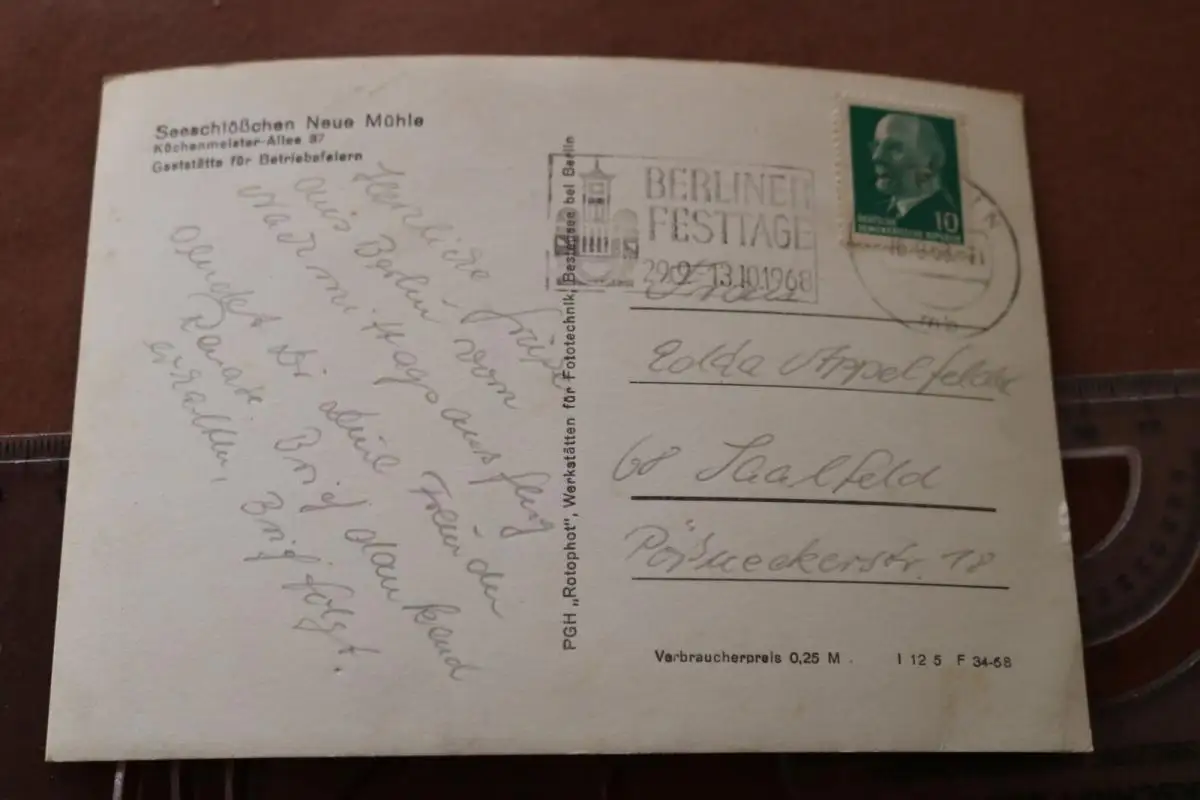 Seeschlößchen Neue Mühle
Köchenmeister-Allee 37
Gaststätte für Betriebsfeiern
Herzliche Grüße
aus Berlin vom
Nachmittagsausflug
sendet Dir deine Freundin
Renate. Brief dankend
erhalten, Brief folgt.
PGH „Rotophot", Werkstätten für Fototechnik, Bestensee bei Berlin
BERLINER
FESTTAGE
29.9.-13.10.1968
10
DEUTSCHE
DEMOKRATISCHE REPUBLIK
Frau
Appelfelder
68 Saalfeld
Pößneckerstr. 18
Verbraucherpreis 0,25 M
I 12 5 F 34-68